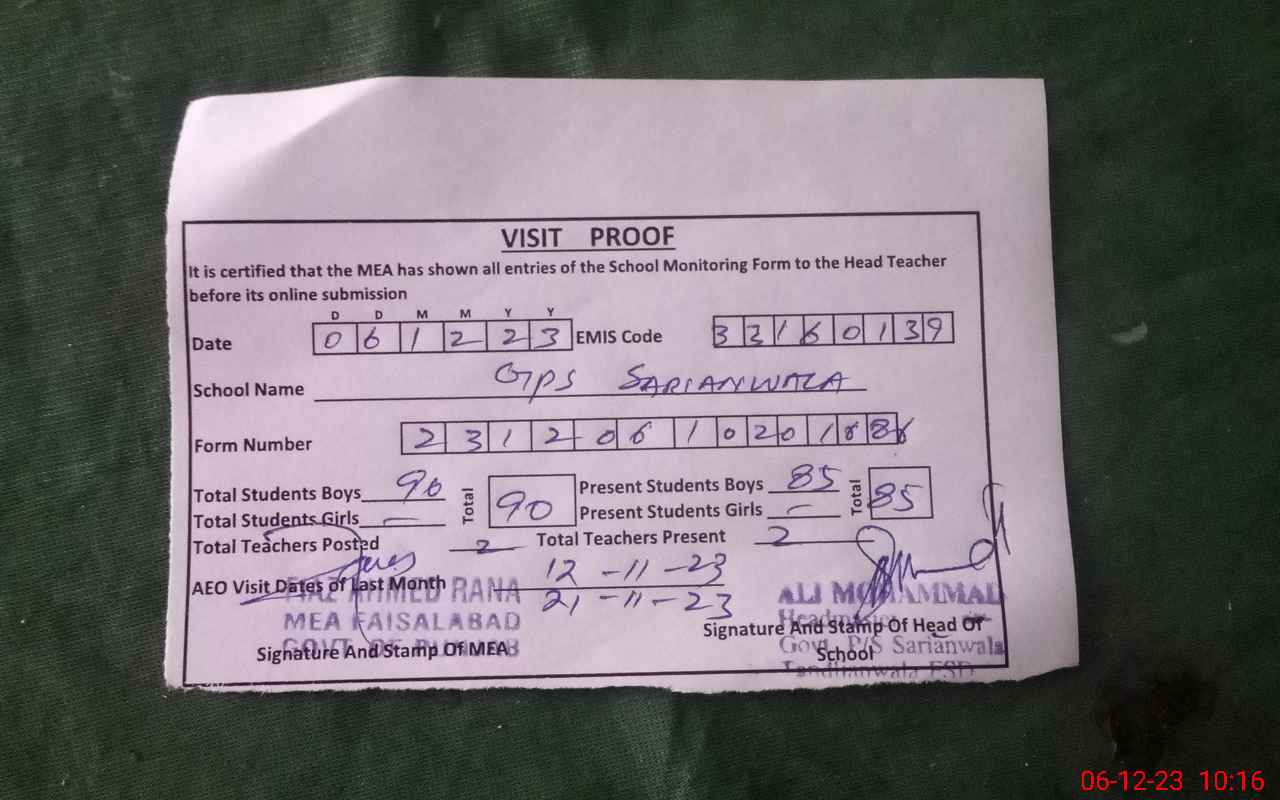 VISIT PROOF
It is certified that the MEA has shown all entries of the School Monitoring Form to the Head Teacher
before its online submission
D D M M Y Y
Date 0 6 1 2 2 3 EMIS Code 3 3 1 6 0 1 3 9
School Name GPS SARIANWALA
Form Number 2 3 1 2 0 6 1 0 2 0 1 8
Total Students Boys 90 Total 90 Present Students Boys 85 Total 85
Total Students Girls – Present Students Girls –
Total Teachers Posted 2 Total Teachers Present 2
AEO Visit Dates of Last Month 12-11-23
21-11-23
AHMED RANA
MEA FAISALABAD
GOVT OF PUNJAB
Signature And Stamp Of MEA
ALI MOHAMMAD
Signature And Stamp Of Head Of
School
Govt. P/S Sarianwala
Tandlianwala FSD
06-12-23 10:16